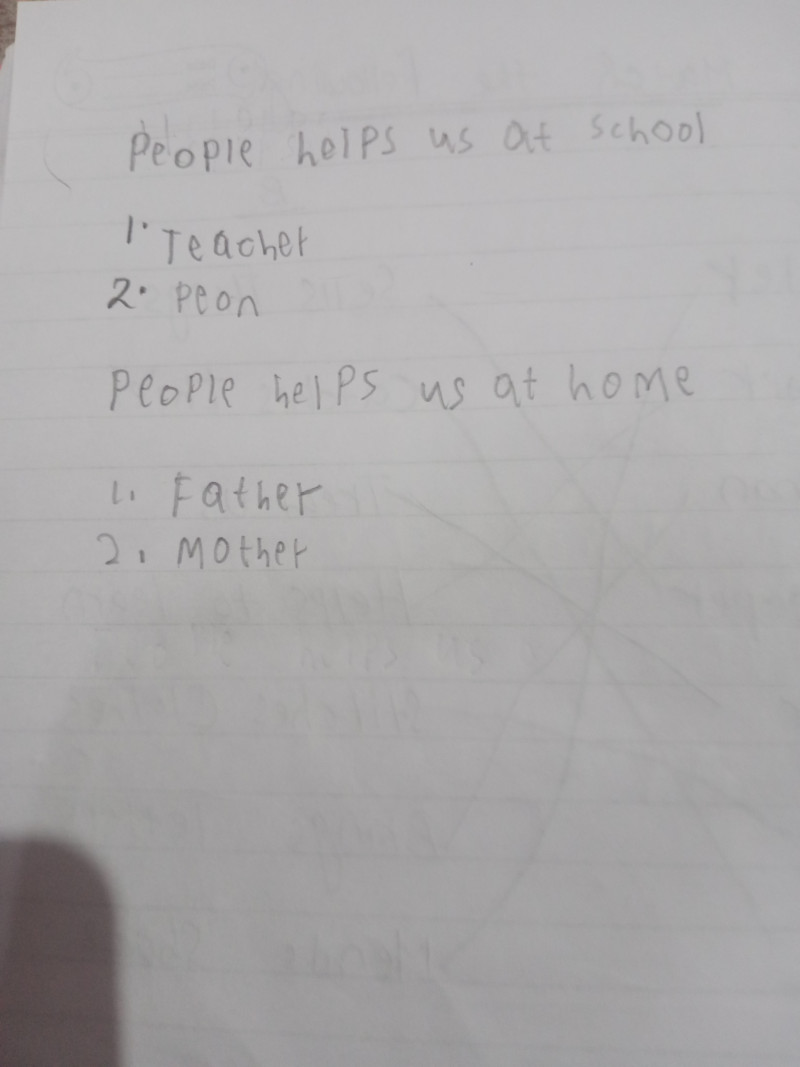 People helps us at school
1. Teacher
2. Peon
People helps us at home
1. Father
2. Mother